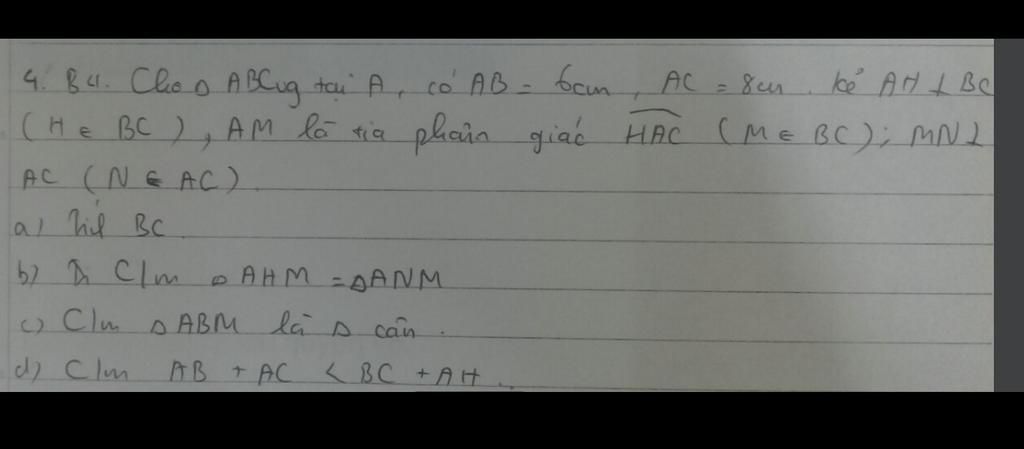 4. B4. Cho Δ ABC vg tại A, có AB = 6cm, AC = 8cm. kẻ AH ⊥ BC
(H ∈ BC), AM là tia phân giác HAC (M ∈ BC); MN ⊥
AC (N ∈ AC).
a) BC
b) C/m Δ AHM = Δ ANM
c) C/m Δ ABM là Δ cân.
d) C/m AB + AC < BC + AH.